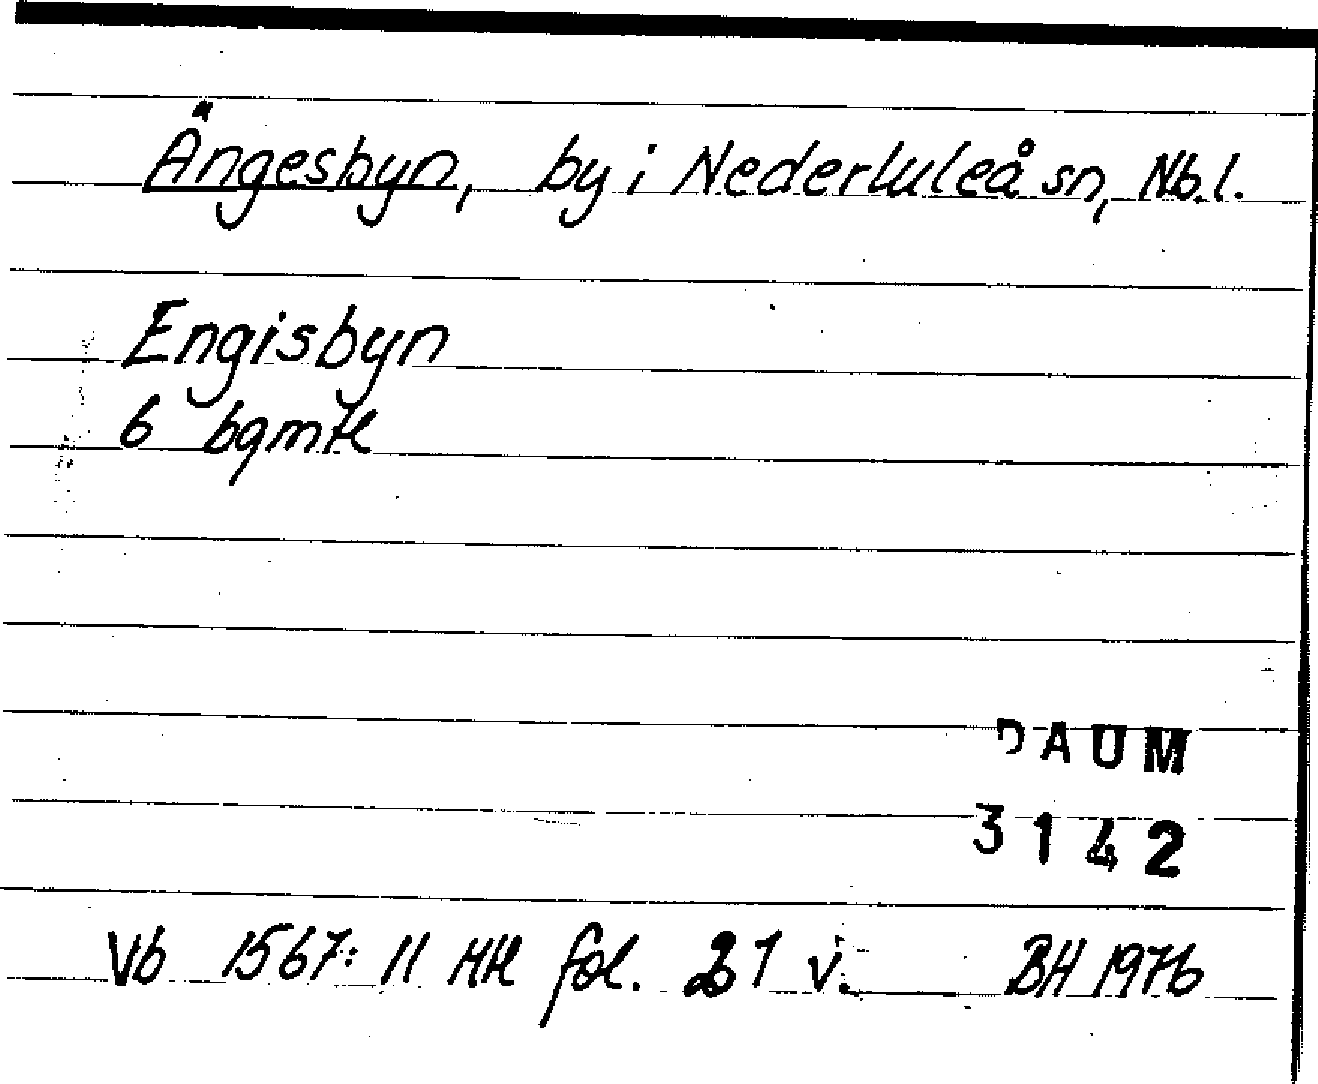 Ängesbyn, by i Nederluleå sn, Nb.l.
Engisbyn
6 bgmtl
DAUM
3142
Vb 1567: 11 HH fol. 21 v. BH 1976